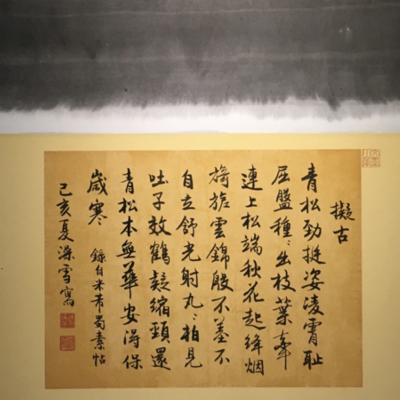 擬古
青松勁挺姿凌霄恥
屈盤種〻出枝葉牽
連上松端秋花起絳烟
旖旎雲錦殷不羞不
自立舒光射丸〻柏見
吐子效鶴疑縮頸還
青松本無華安得保
歲寒 錄自米芾蜀素帖
己亥夏雪寫